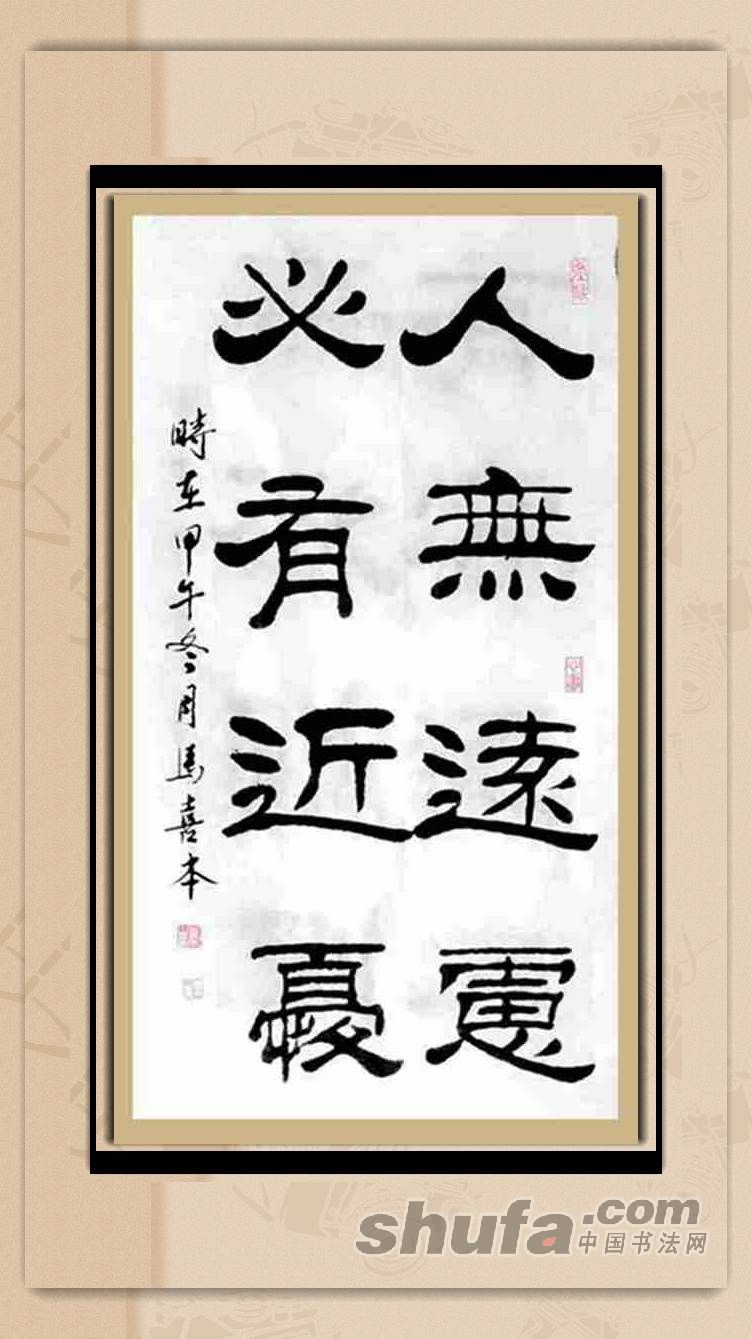 人無遠慮
必有近憂
時在甲午冬月馬喜本
shufa.com
中国书法网